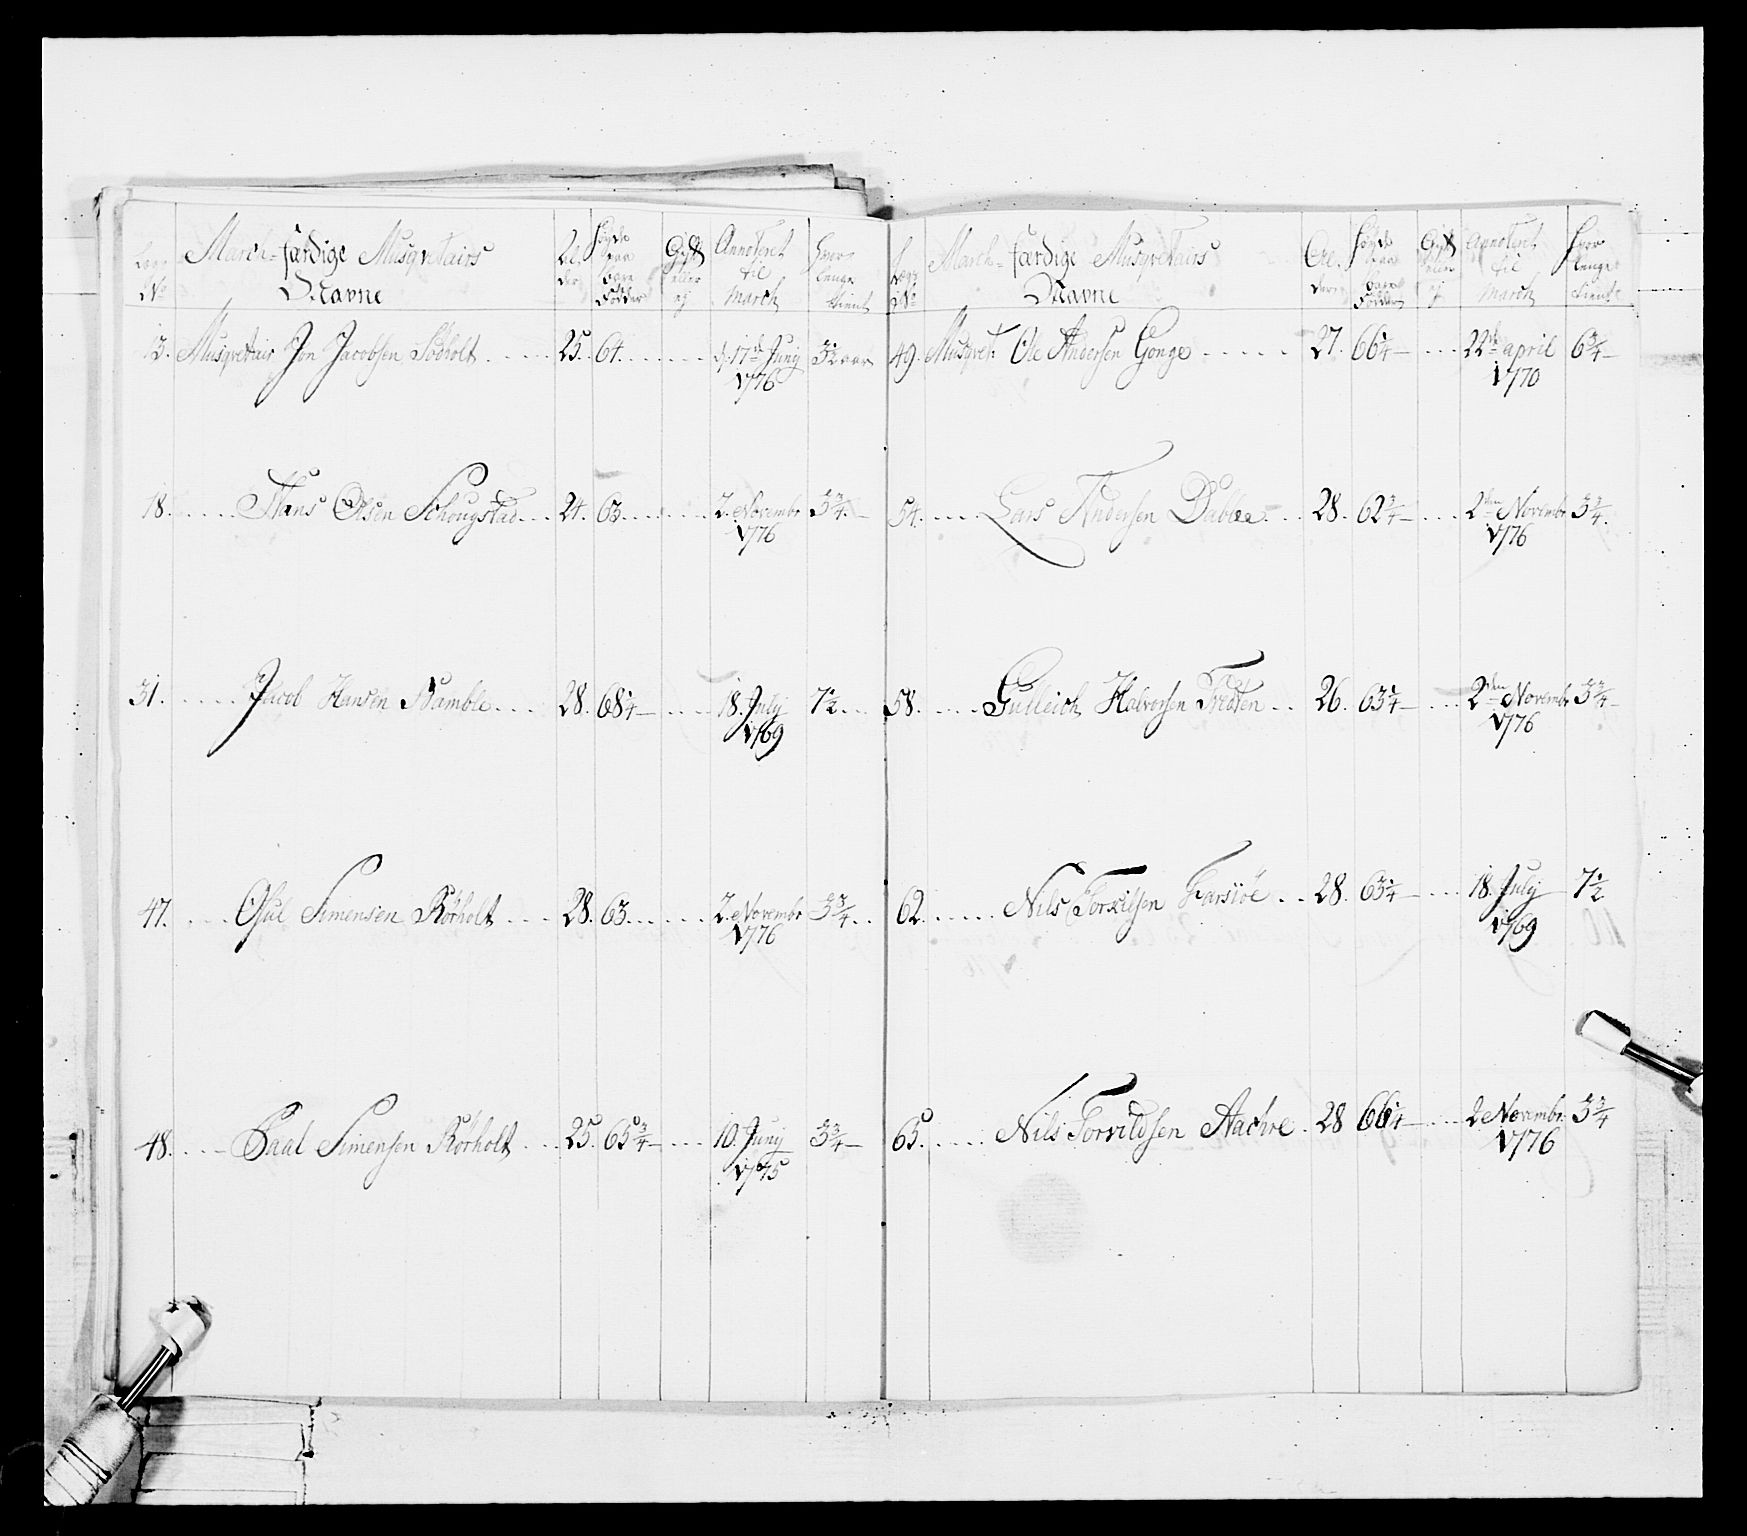 Lægs No
March-færdige Musqvetairs
Navne
Al
der
Høyde
paa
bare
Fødder
Gift
eller
ej
Annoteret
til
March
Hvor
lenge
tient
13. Musqvetair Jon Jacobsen Sødholt 25. 64. d: 17d Junij 3½ aar
1776
18. Hans Olsen Schougstad 24. 63. 2. Novembr 3¾.
1776
31. Jacob Hansen Bamble 28. 68¼ 18. July 7½
1769
47. Osul Simensen Rörholt 28. 63. 2. Novembr 3¾
1776
48. Paal Simensen Rörholt 25. 65¾ 10. Junij 3¾
1775
Lægs No
March-færdige Musqvetairs
Navne
Al
deren
Høyde
paa
bare
Fødder
Gift
eller
ej
Annoteret
til
March
Hvor
lenge
tient
49. Musqvet: Ole Andersen Gonge 27. 66¼ 22de april 6¾
1770
54. Lars Andersen Dablee 28. 62¾ 2den Novembr 3¾.
1776
58. Gulleich Halvorsen Tredten 26. 63¼ 2den Novembr 3¾
1776
62. Nils Torkildsen Farsiöe 28. 63¼ 18. July 7½
1769
65. Nils Torvildsen Aachre 28 66¼ 2 Novembr. 3¾
1776